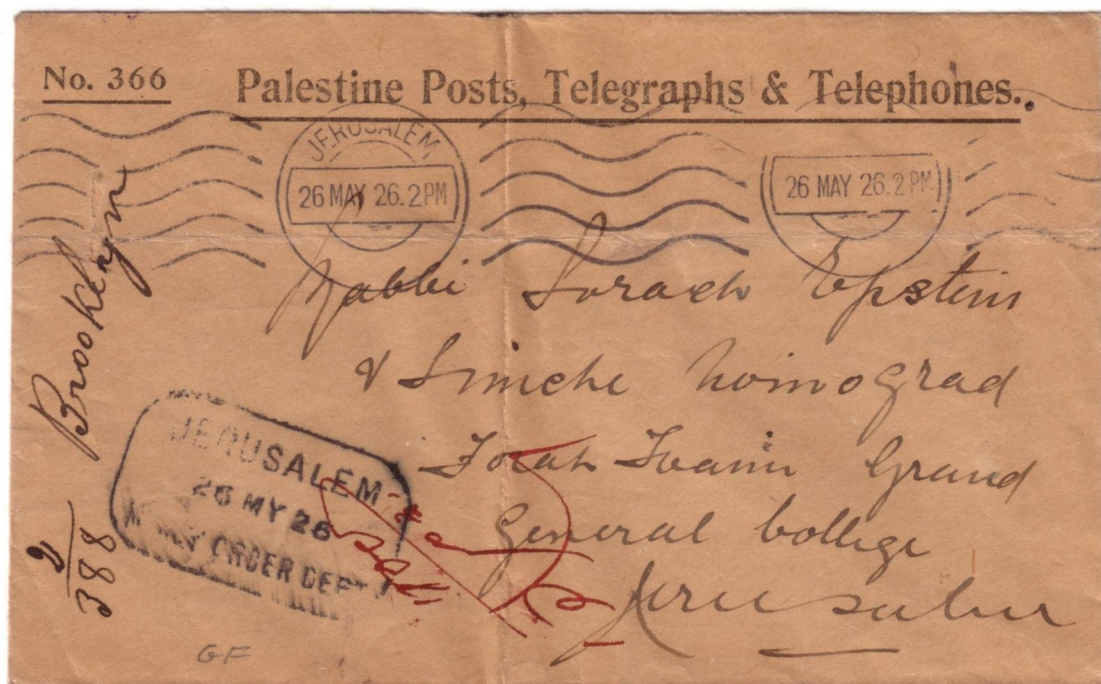 No. 366
Palestine Posts, Telegraphs & Telephones.
JERUSALEM
26 MAY 26. 2 PM
26 MAY 26. 2 PM
Rabbi Sorach Epstein
& Simche Winograd
Torah Chaim Grand
General College
Jerusalem
Brooklyn
2
388
JERUSALEM
26 MY 26
MONEY ORDER DEPT
GF